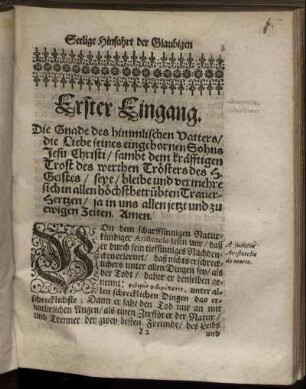 Seelige Hinfahrt der Glaubigen
Erster Eingang.
Die Gnade des himmlischen Vatters/
die Liebe seines eingebornen Sohns
Jesu Christi/ sambt dem kräfftigen
Trost des werthen Trösters des H.
Geistes/ seye/ bleibe und vermehre
sich in allen höchstbetrübten Traur-
Hertzen/ ja in uns allen jetzt und zu
ewigen Zeiten. Amen.
VOn dem scharffsinnigen Natur-
kündiger Aristotele lesen wir/ daß
er durch sein tieffsinniges Nachden-
cken erlernet/ daß nichts erschreck-
lichers unter allen Dingen sey/ als
der Todt/ daher er denselben ge-
nennt: unter al-
len schrecklichen Dingen das er-
schrecklichste: Dann er sahe den Tod nur an mit
natürlichen Augen/ als einen Zerstörer der Natur/
und Trenner der zwey besten Freunde/ des Leibs
und
A judicio
Aristotelis
de morte.